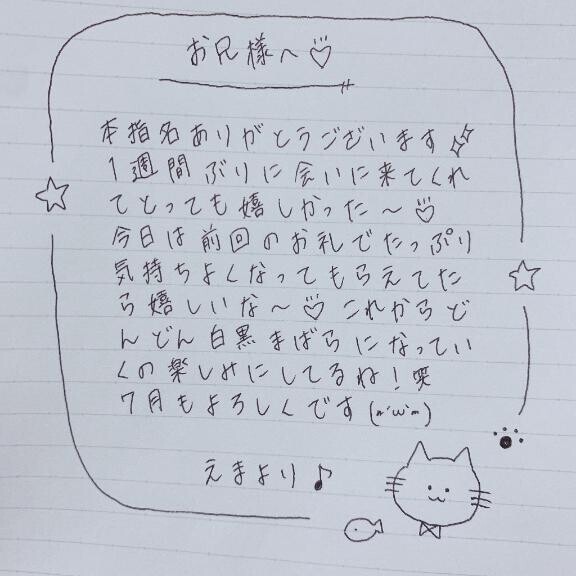 お兄様へ♡
本指名ありがとうございます✨
1週間ぶりに会いに来てくれ
てとっても嬉しかった〜♡
今日は前回のお礼でたっぷり
気持ちよくなってもらえてた
ら嬉しいな〜♡これからど
んどん白黒まばらになってい
くの楽しみにしてるね!笑
7月もよろしくです(m'ω'm)
えまより♪